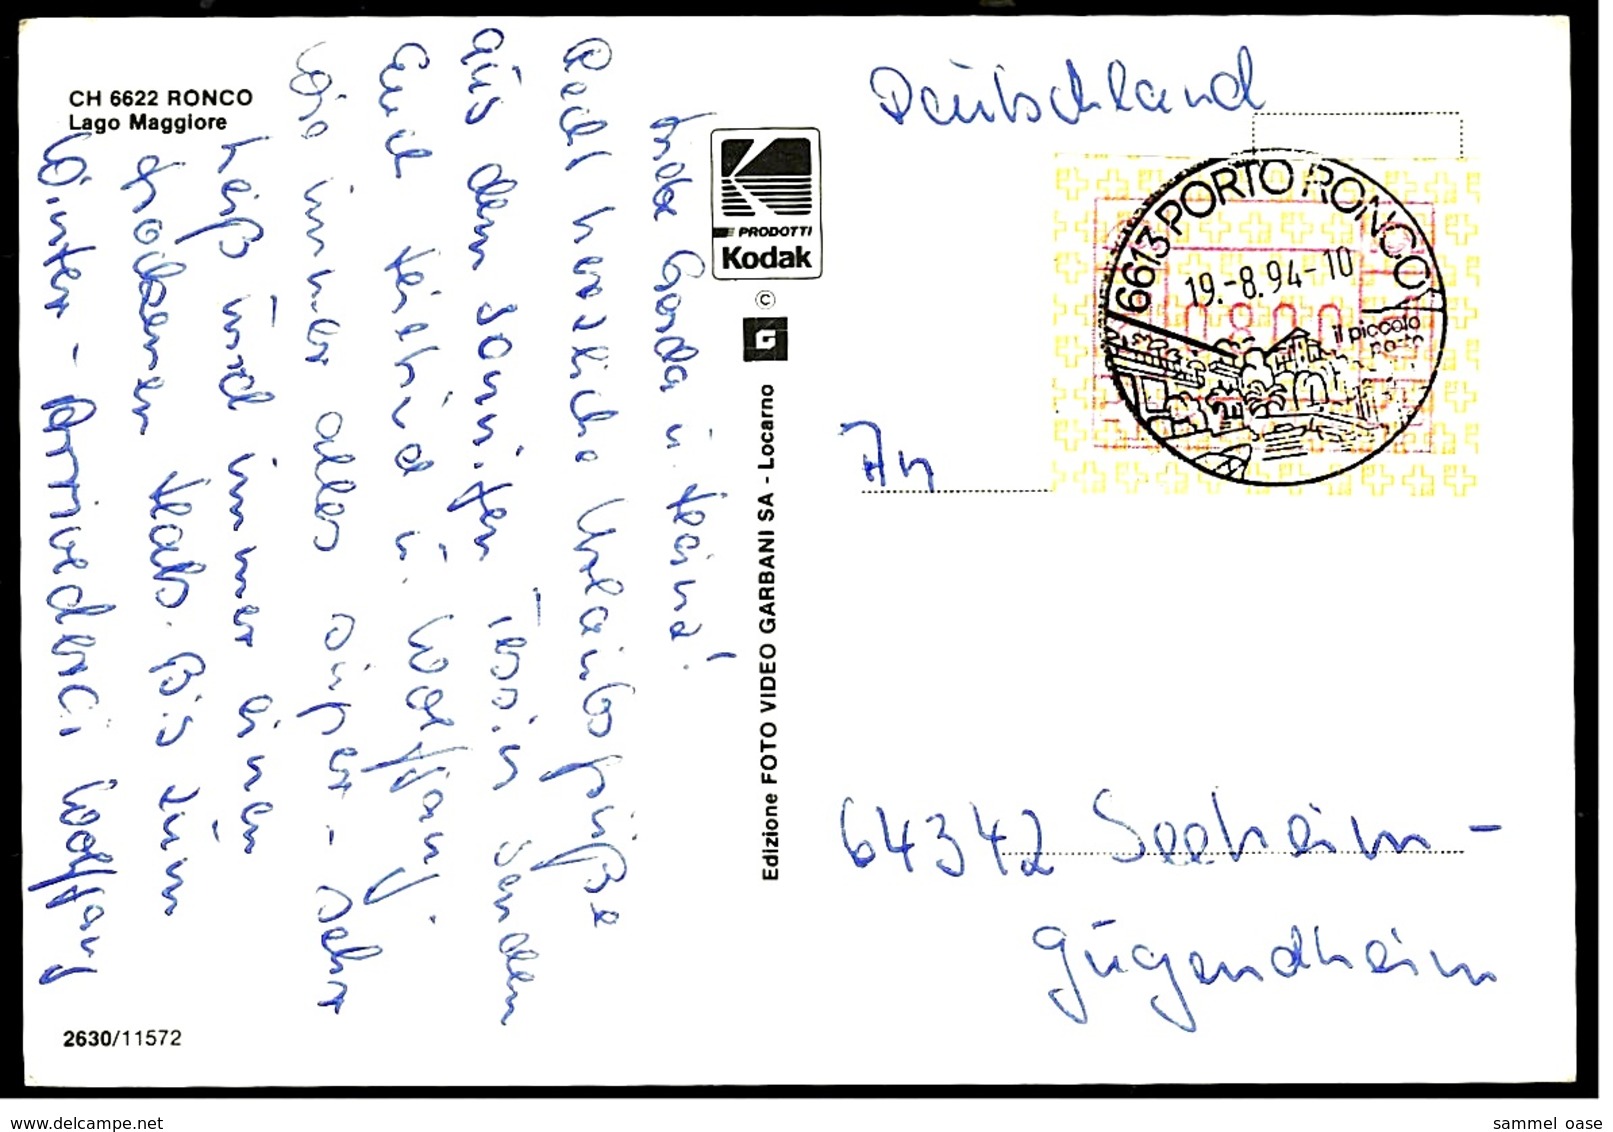 CH 6622 RONCO
Lago Maggiore
Gerda u. Heinz!
Recht herzliche Urlaubsgrüße
aus dem sonnigen Tessin senden
Euch u. Wolfgang.
Wie immer alles super - sehr
heiß und immer einen
trockenen Hals. Bis zum
Winter - Arrivederci Wolfgang
2630/11572
PRODOTTI
Kodak
©
G
Edizione FOTO VIDEO GARBANI SA - Locarno
Deutschland
6613 PORTO RONCO
19.-8.94-10
0800
il piccolo
porto
An
64342 Seeheim -
Jugendheim
sammel_oase
www.delcampe.net